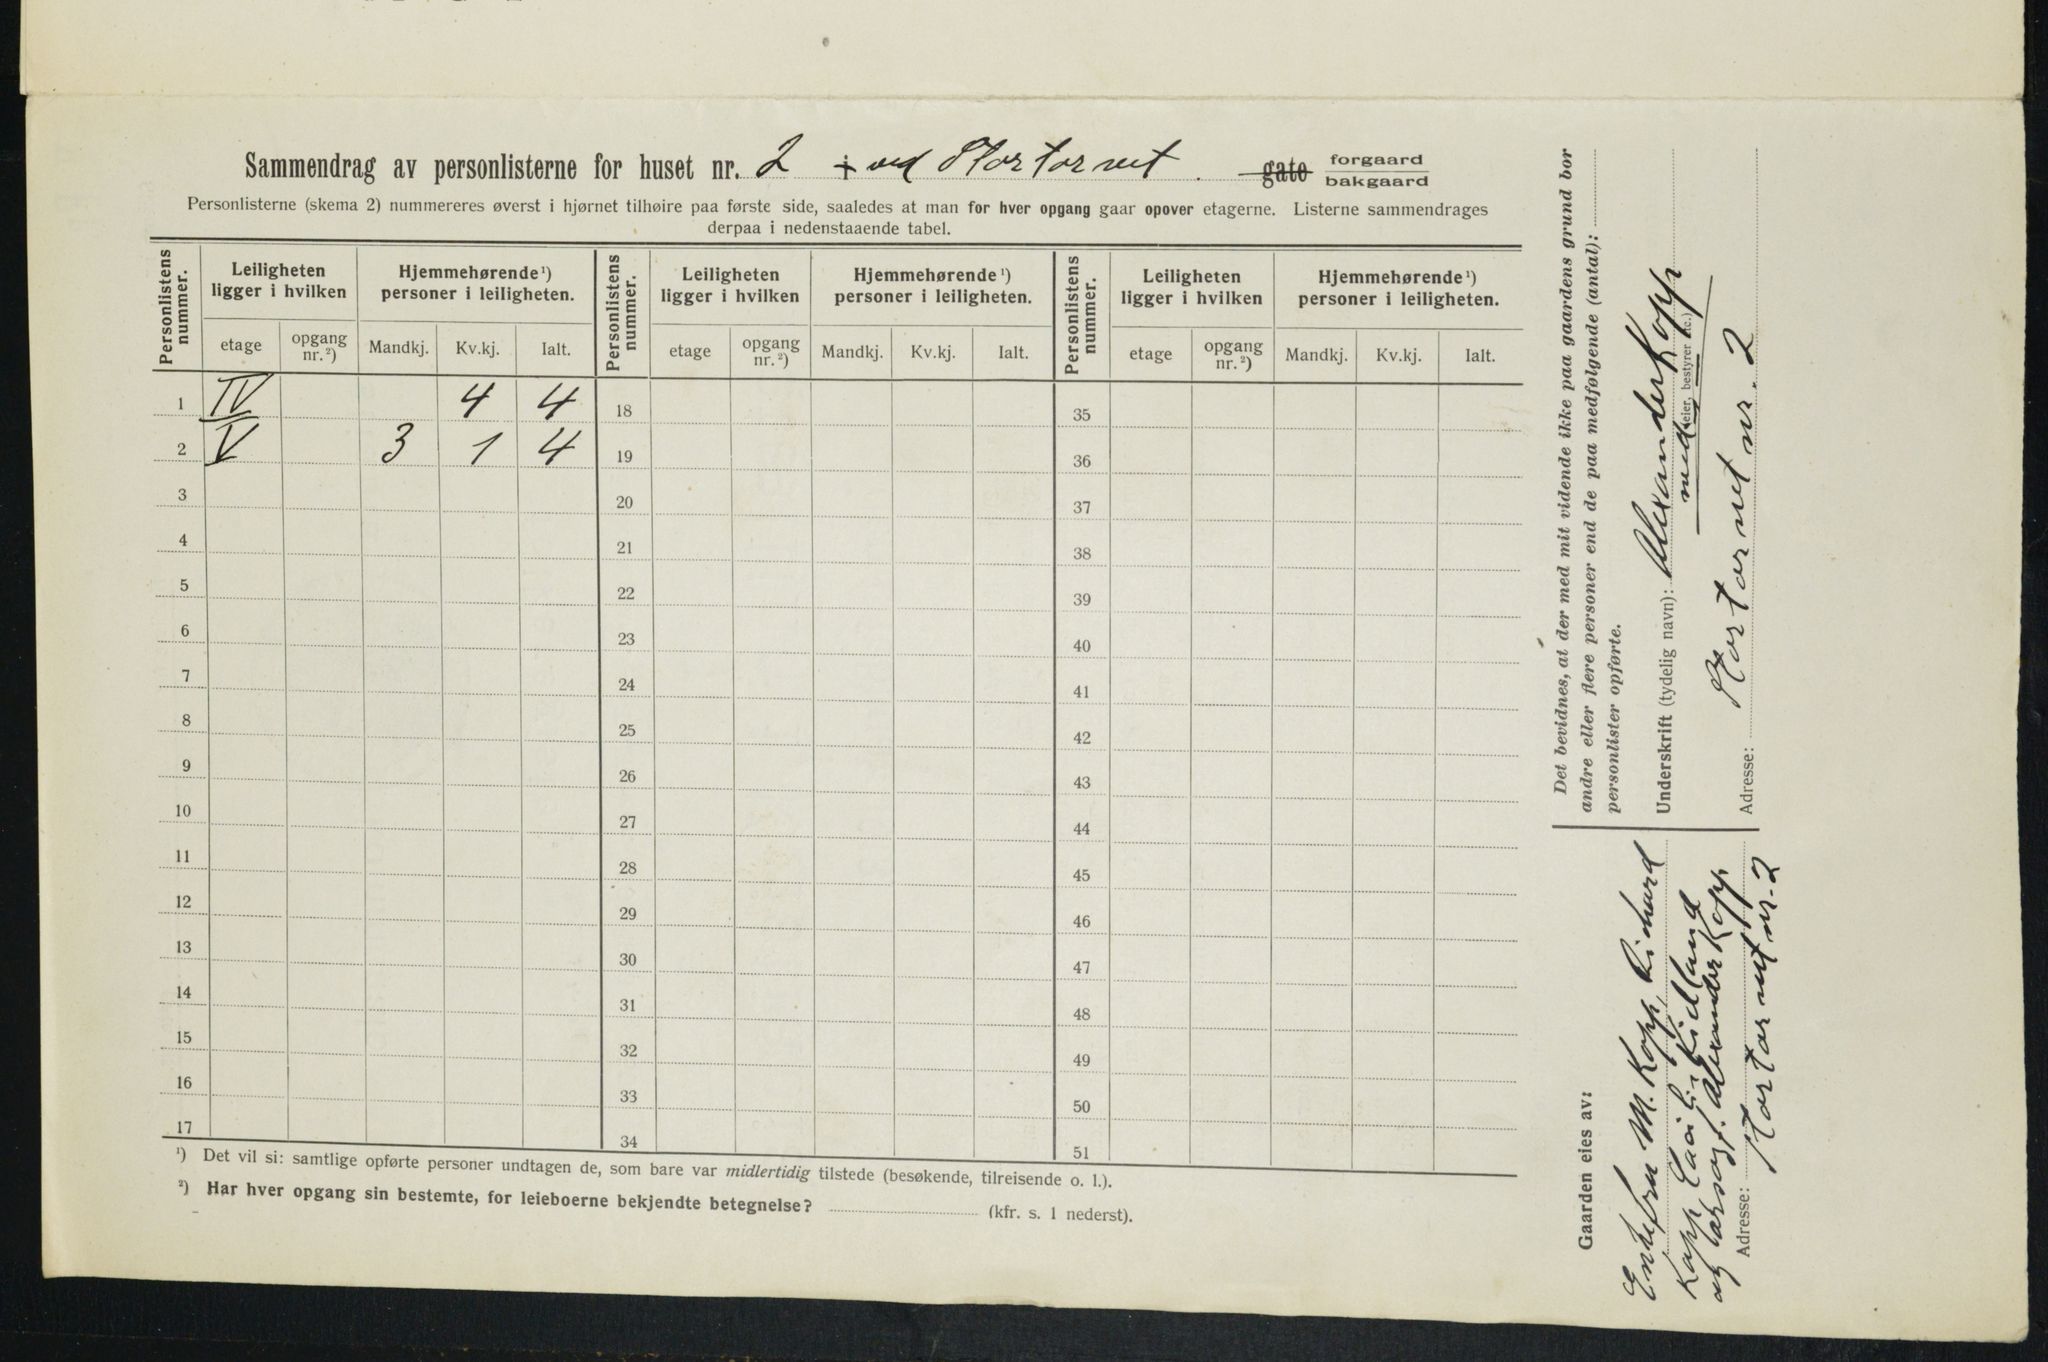 Sammendrag av personlisterne for huset nr. 2 i ved Stortorvet gate forgaard bakgaard
Personlisterne (skema 2) nummereres øverst i hjørnet tilhøire paa første side, saaledes at man for hver opgang gaar opover etagerne. Listerne sammendrages
derpaa i nedenstaaende tabel.
Personlistens nummer. Leiligheten ligger i hvilken Hjemmehørende ¹) personer i leiligheten. Personlistens nummer. Leiligheten ligger i hvilken Hjemmehørende ¹) personer i leiligheten. Personlistens nummer. Leiligheten ligger i hvilken Hjemmehørende ¹) personer i leiligheten.
etage opgang nr.²) Mandkj. Kv.kj. Ialt. etage opgang nr.²) Mandkj. Kv.kj. Ialt. etage opgang nr.²) Mandkj. Kv.kj. Ialt.
1 IV 4 4 18 35
2 V 3 1 4 19 36
3 20 37
4 21 38
5 22 39
6 23 40
7 24 41
8 25 42
9 26 43
10 27 44
11 28 45
12 29 46
13 30 47
14 31 48
15 32 49
16 33 50
17 34 51
¹) Det vil si: samtlige opførte personer undtagen de, som bare var midlertidig tilstede (besøkende, tilreisende o. l.).
²) Har hver opgang sin bestemte, for leieboerne bekjendte betegnelse? (kfr. s. 1 nederst).
Det bevidnes, at der med mit vidende ikke paa gaardens grund bor
andre eller flere personer end de paa medfølgende (antal):
personlister opførte.
Underskrift (tydelig navn): Alexander Kopp
med (eier, bestyrer etc.)
Adresse: Stortorvet nr. 2
Gaarden eies av:
Enkefru M. Kopp, Richard
Kopp, Kielland
og Alexander Kopp.
Adresse: Stortorvet nr. 2